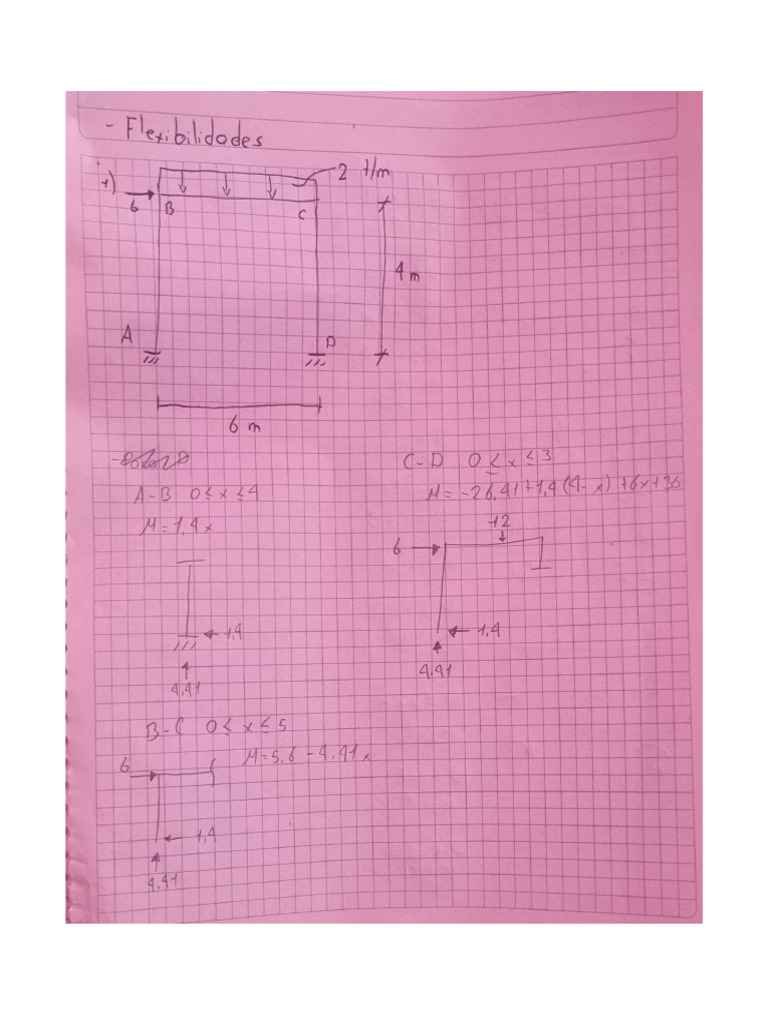 - Flexibilidades
1)
2 t/m
6
B
C
4 m
A
D
6 m
A-B 0 ≤ x ≤ 4
M = 1,4 x
1,4
4.41
B-C 0 ≤ x ≤ 5
M = 5.6 - 4.41 x
6
1,4
4.41
C-D 0 ≤ x ≤ 3
M = -26,41 + 1,4 (4-x) + 6x + 36
12
6
1,4
4.41